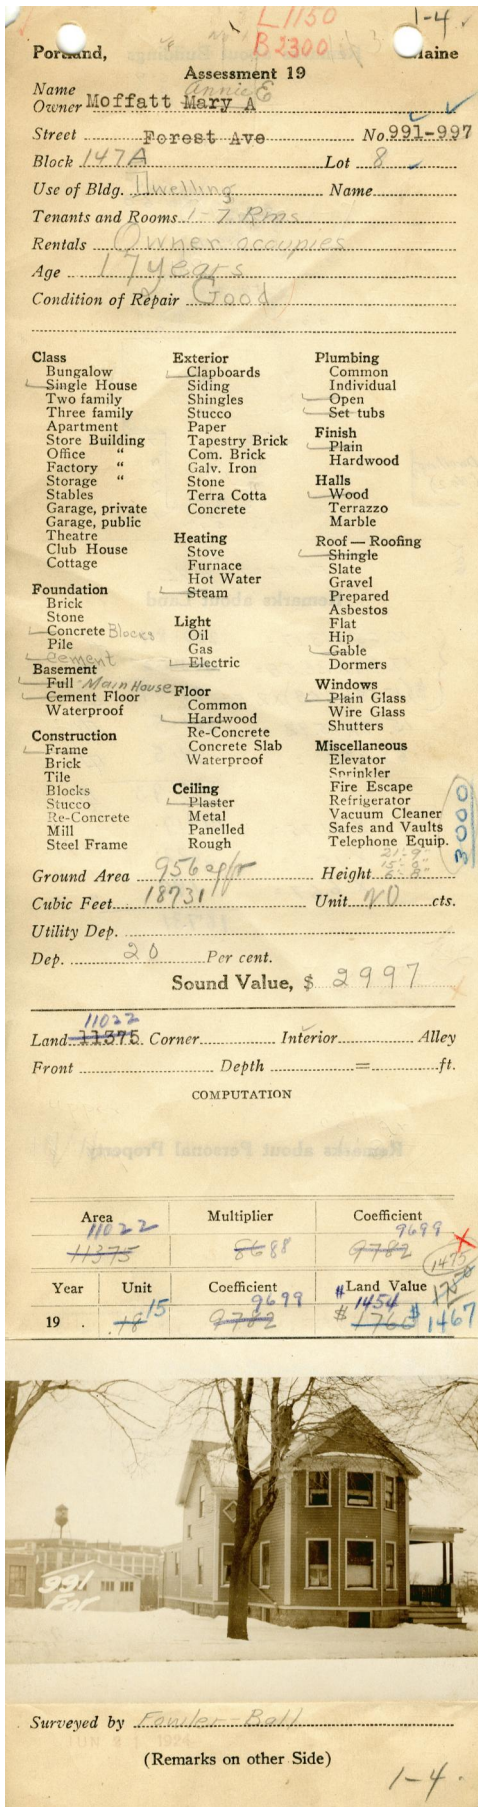 L 1150
1-4
B 2300
Portland, Maine
Assessment 19
Annie E
Name
Owner Moffatt Mary A
Street Forest Ave No. 991-997
Block 147A Lot 8
Use of Bldg. Dwelling Name
Tenants and Rooms 1-7 Rms
Rentals Owner occupies
Age 17 years
Condition of Repair Good
Class
Bungalow
Single House
Two family
Three family
Apartment
Store Building
Office "
Factory "
Storage "
Stables
Garage, private
Garage, public
Theatre
Club House
Cottage
Foundation
Brick
Stone
Concrete Blocks
Pile
Cement
Basement
Full Main House
Cement Floor
Waterproof
Construction
Frame
Brick
Tile
Blocks
Stucco
Re-Concrete
Mill
Steel Frame
Exterior
Clapboards
Siding
Shingles
Stucco
Paper
Tapestry Brick
Com. Brick
Galv. Iron
Stone
Terra Cotta
Concrete
Heating
Stove
Furnace
Hot Water
Steam
Light
Oil
Gas
Electric
Floor
Common
Hardwood
Re-Concrete
Concrete Slab
Waterproof
Ceiling
Plaster
Metal
Panelled
Rough
Plumbing
Common
Individual
Open
Set tubs
Finish
Plain
Hardwood
Halls
Wood
Terrazzo
Marble
Roof — Roofing
Shingle
Slate
Gravel
Prepared
Asbestos
Flat
Hip
Gable
Dormers
Windows
Plain Glass
Wire Glass
Shutters
Miscellaneous
Elevator
Sprinkler
Fire Escape
Refrigerator
Vacuum Cleaner
Safes and Vaults
Telephone Equip.
3000
Ground Area 956 sq ft Height
Cubic Feet 18731 Unit 20 cts.
Utility Dep.
Dep. 20 Per cent.
Sound Value, $ 2997
11022
Land 11375 Corner Interior Alley
Front Depth = ft.
COMPUTATION
Area Multiplier Coefficient
11022 9699
11375 8688 9782
1475
Year Unit Coefficient Land Value
15 9699 1454
19 18 9782 $ 1760 $ 1467
991
For
Surveyed by Fowler-Ball
JUN 21 1924
(Remarks on other Side)
1-4